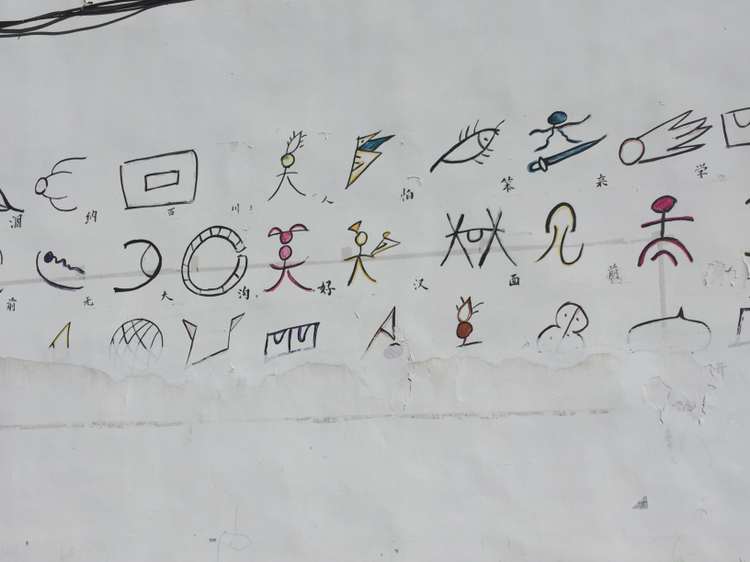 纳 百 川 人 怕 笨 学
前 无 大 沟 好 汉 面 前